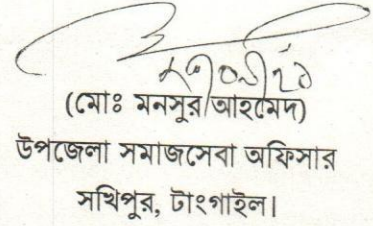 (মোঃ মনসুর আহমেদ)
উপজেলা সমাজসেবা অফিসার
সখিপুর, টাংগাইল।